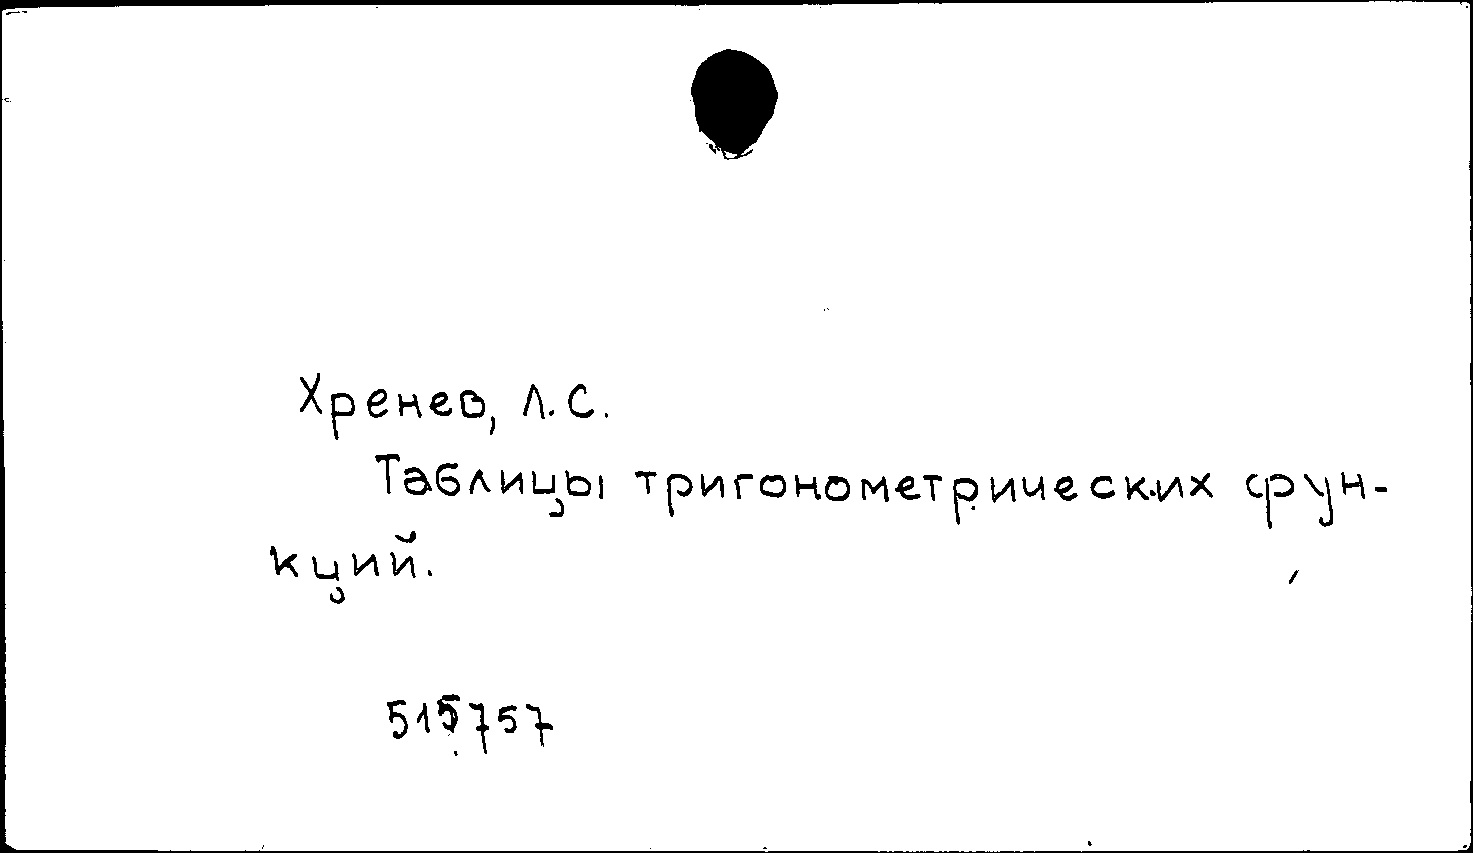 Хренев, Л.С.
Таблицы тригонометрических фун-
кций.
515757